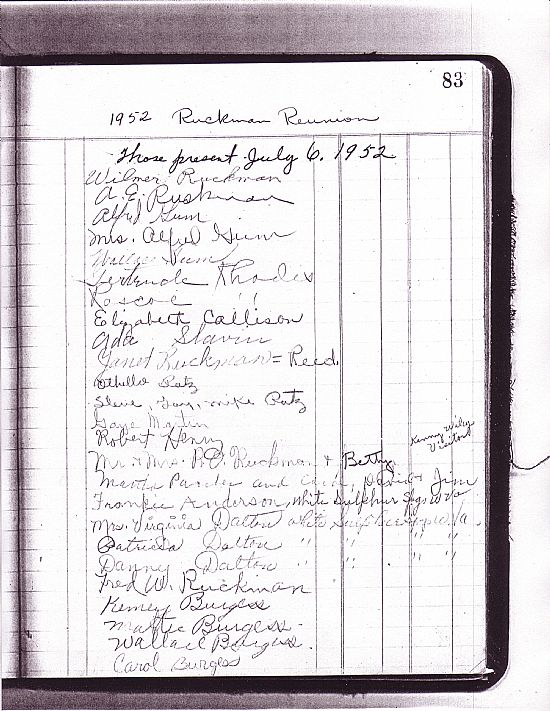 83
1952 Ruckman Reunion
Those present July 6, 1952
Wilmer Ruckman
A. E. Ruckman
Alfred Gum
Mrs. Alfred Gum
Wallace Gum
Gertrude Rhodes
Roscoe " "
Elizabeth Callison
Ada Slavin
Janet Ruckman = Reed
Othello Ratz
Steve, Mike Ratz
Gaye Martin
Robert Henry
Kenny Wiley
Visitors
Mr. + Mrs. Ruckman + Betty
and David + Jim
Frankie Anderson, White Sulphur Spgs W Va
Mrs. Virginia Dalton White Sulphur W Va.
Patricia Dalton " " " " "
Danny Dalton " " " " "
Fred W. Ruckman
Burgess
Mattie Burgess
Wallace Burgess.
Carol Burgess